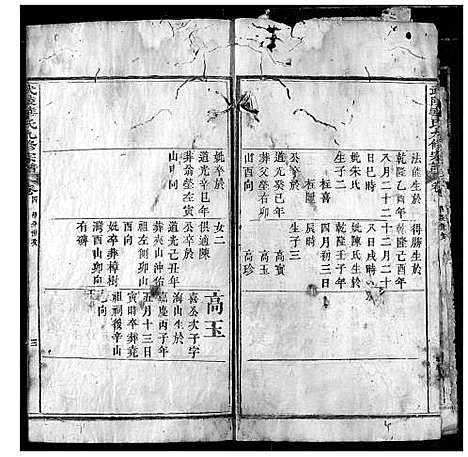 法能生於
乾隆乙酉年
八月二十二
日巳時
妣朱氏
生子二
桂喜
桂
公卒於
道光癸巳年
葬父塋右卯
山酉向
妣卒於
道光辛巳年
葬翁塋左寅
山申向
得勝生於
乾隆己酉年
十二月二十
八日戌時
妣陳氏生於
乾隆壬子年
四月初三日
辰時
生子三
高寶
高玉
高珍
女二
俱適陳
道光己丑年
葬夾山沖佑
祖左側卯山
酉向
妣卒葬樟樹
灣酉山卯向
有碑
高玉
喜公次子字
海山生於
嘉慶丙子年
五月十三日
寅時卒葬堯
祖祠後辛山
乙向
三